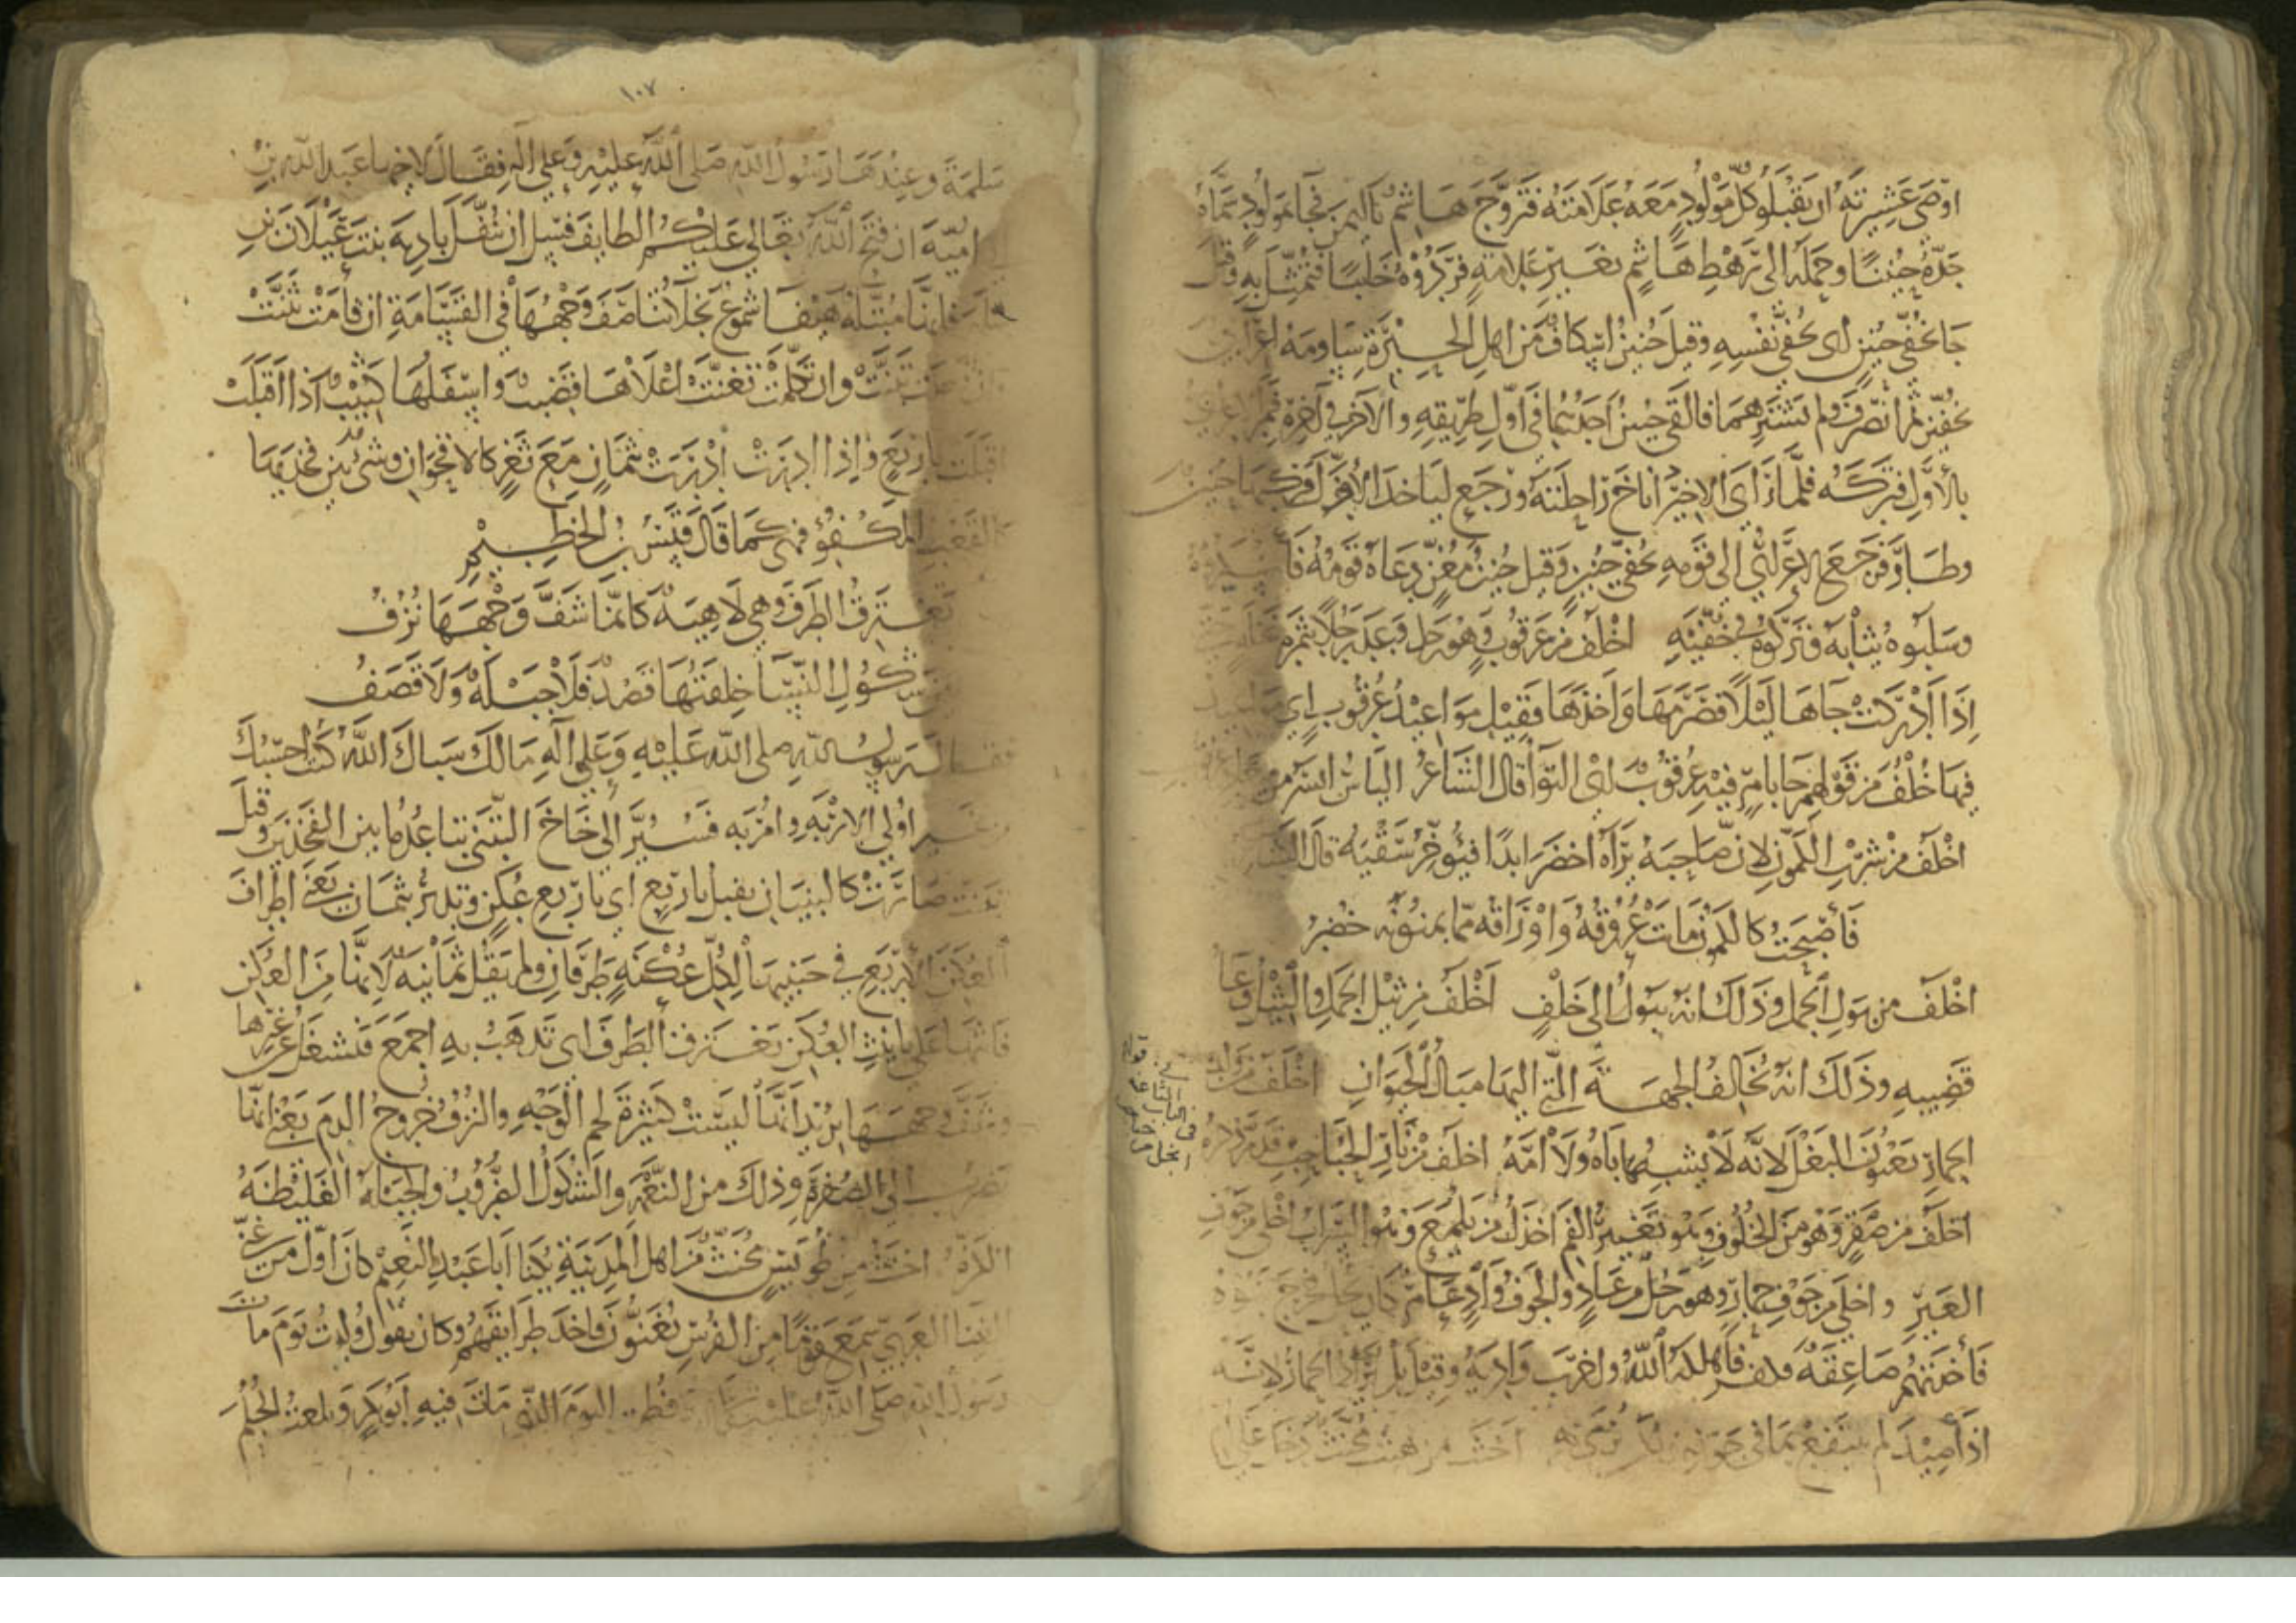 اوصى عشيرته ان يقبلو كل مولود معه علامته فتزوج هاشم باليمن فجا مولود سماه
جده حنينا وحمله الى رهط هاشم بغير علامة فردوه خائبا فتمثل به وقيل
جا بخفي حنين اى بخفي نفسه وقيل حنين اسكاف من اهل الحيرة ساومه اعرابي
بخفين ثم انصرف ولم يشترهما فالقى حنين احدهما في اول طريقه والاخر في اخره فمر الاعرابي
بالاول فتركه فلما راى الاخير اناخ راحلته ورجع لياخذ الاول فركبها حنين
وطار فرجع الاعرابي الى قومه بخفي حنين وقيل حنين مغن دعاه قوم
وسلبوه ثيابه فتركوه في خفيه اخلف من عرقوب وهو رجل وعد رجلا بثمرة نخلة
اذا ادركت جاها ليلا فصرمها واخذها فقيل مواعيد عرقوب اي
فيها خلف من قولهم جا بامر فيه عرقوب اي التوا قال الشاعر الياس ايسر من
اخلف من شرب الكمون لان صاحبه يراه اخضر ابدا فيوخر سقيه قال الشاعر
فاصبحت كالكمون ماتت عروقه واوراقه مما يمنونه خضر
اخلف من بول الجمل وذلك انه يبول الى خلف اخلف من ثيل الجمل والثيل وعا
قضيبه وذلك انه يخالف الجهة التي اليها مبال الحيوان اخلف من ولد
الحمار يعنون البغل لانه لا يشبه اباه ولا امه اخلف من نار الحباحب قد مر ذكره
اخلف من صقر وهو من الخلوف وهو تغير الفم اخذل من يلمع وهو السراب اخلى من جوف
العير واخلى من جوف حمار وهو رجل من عاد والجوف واد عامر كان يحله فخرج بنوه
فاخذتهم صاعقة فكفر فاهلكه الله واخرب واديه وقيل بل يراد الحمار لانه
اذا صيد لم ينتفع بما في جوفه بل يرمى به اخنث من هيت مخنث دخل على ام
١٠٧
سلمة وعندها رسول الله صلى الله عليه وعلى اله فقال لاخيها عبدالله بن
امية ان فتح الله تعالى عليكم الطايف فسل ان تنفل بادية بنت غيلان بن
سلمة فانها مبتلة هيفا شموع نجلا تناصف وجهها في القسامة ان قامت تثنت
وان قعدت تبنت وان تكلمت تغنت اعلاها قضيب واسفلها كثيب اذا اقبلت
اقبلت باربع واذا ادبرت ادبرت بثمان مع ثغر كالاقحوان وشي بين فخذيها
كالقعب المكفؤ فهي كما قال قيس بن الخطيم
تغترق الطرف وهي لاهية كانما شف وجهها نزف
بين شكول النسا خلقتها قصد فلا جبلة ولا قضف
فقال له رسول الله صلى الله عليه وعلى اله مالك سباك الله كنت احسبك
من غير اولى الاربة وامر به فسير الى خاخ التبني تباعد ما بين الفخذين وقيل
تبنت صارت كالبنيان يقبل باربع اي باربع عكن وتدبر بثمان يعني اطراف
العكن الاربع في جنبيها لكل عكنة طرفان ولم يقل ثمانية لانها من العكن
فانثها على تانيث العكن تغترق الطرف اى تذهب به اجمع فتشغل عن غيرها
وشف وجهها يريد انها ليست كثيرة لحم الوجه والنزف خروج الدم يعني انها
تضرب الى الصفرة وذلك من النعمة والشكول الضروب والجبلة الغليظة
اخنث من طويس مخنث من اهل المدينة يكنا ابا عبد النعيم كان اول من غنى
الغنا العربي سمع قوما من الفرس يغنون فاخذ طرايقهم وكان يقول ولدت يوم مات
رسول الله صلى الله عليه وفطمت اليوم الذي مات فيه ابو بكر وبلغت الحلم